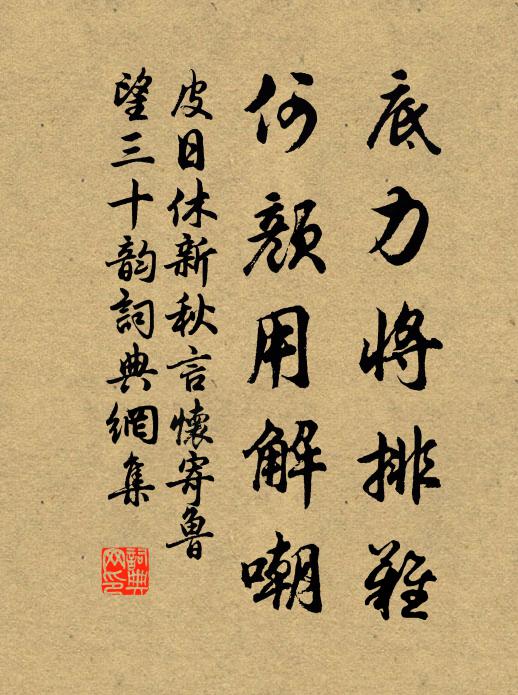 底力将排難
何顏用解嘲
皮日休新秋言懷寄魯
望三十韵詞典網集
詞典
网印